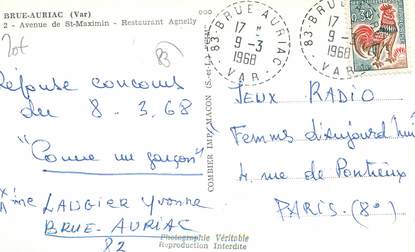 BRUE-AURIAC (Var)
2 - Avenue de St-Maximin - Restaurant Agnelly
Réponse concours
du 8.3.68
"Comme un garçon"
Mme LAUGIER Yvonne
BRUE-AURIAC
83
83-BRUE AURIAC
17 H
9-3
1968
VAR
83-BRUE AURIAC
17
9-3
1968
VAR
COMBIER IMP. MACON
JEUX RADIO
Femmes d'Aujourd'hui
4, rue de Ponthieu
PARIS. (8°)
Photographie Véritable
Reproduction Interdite